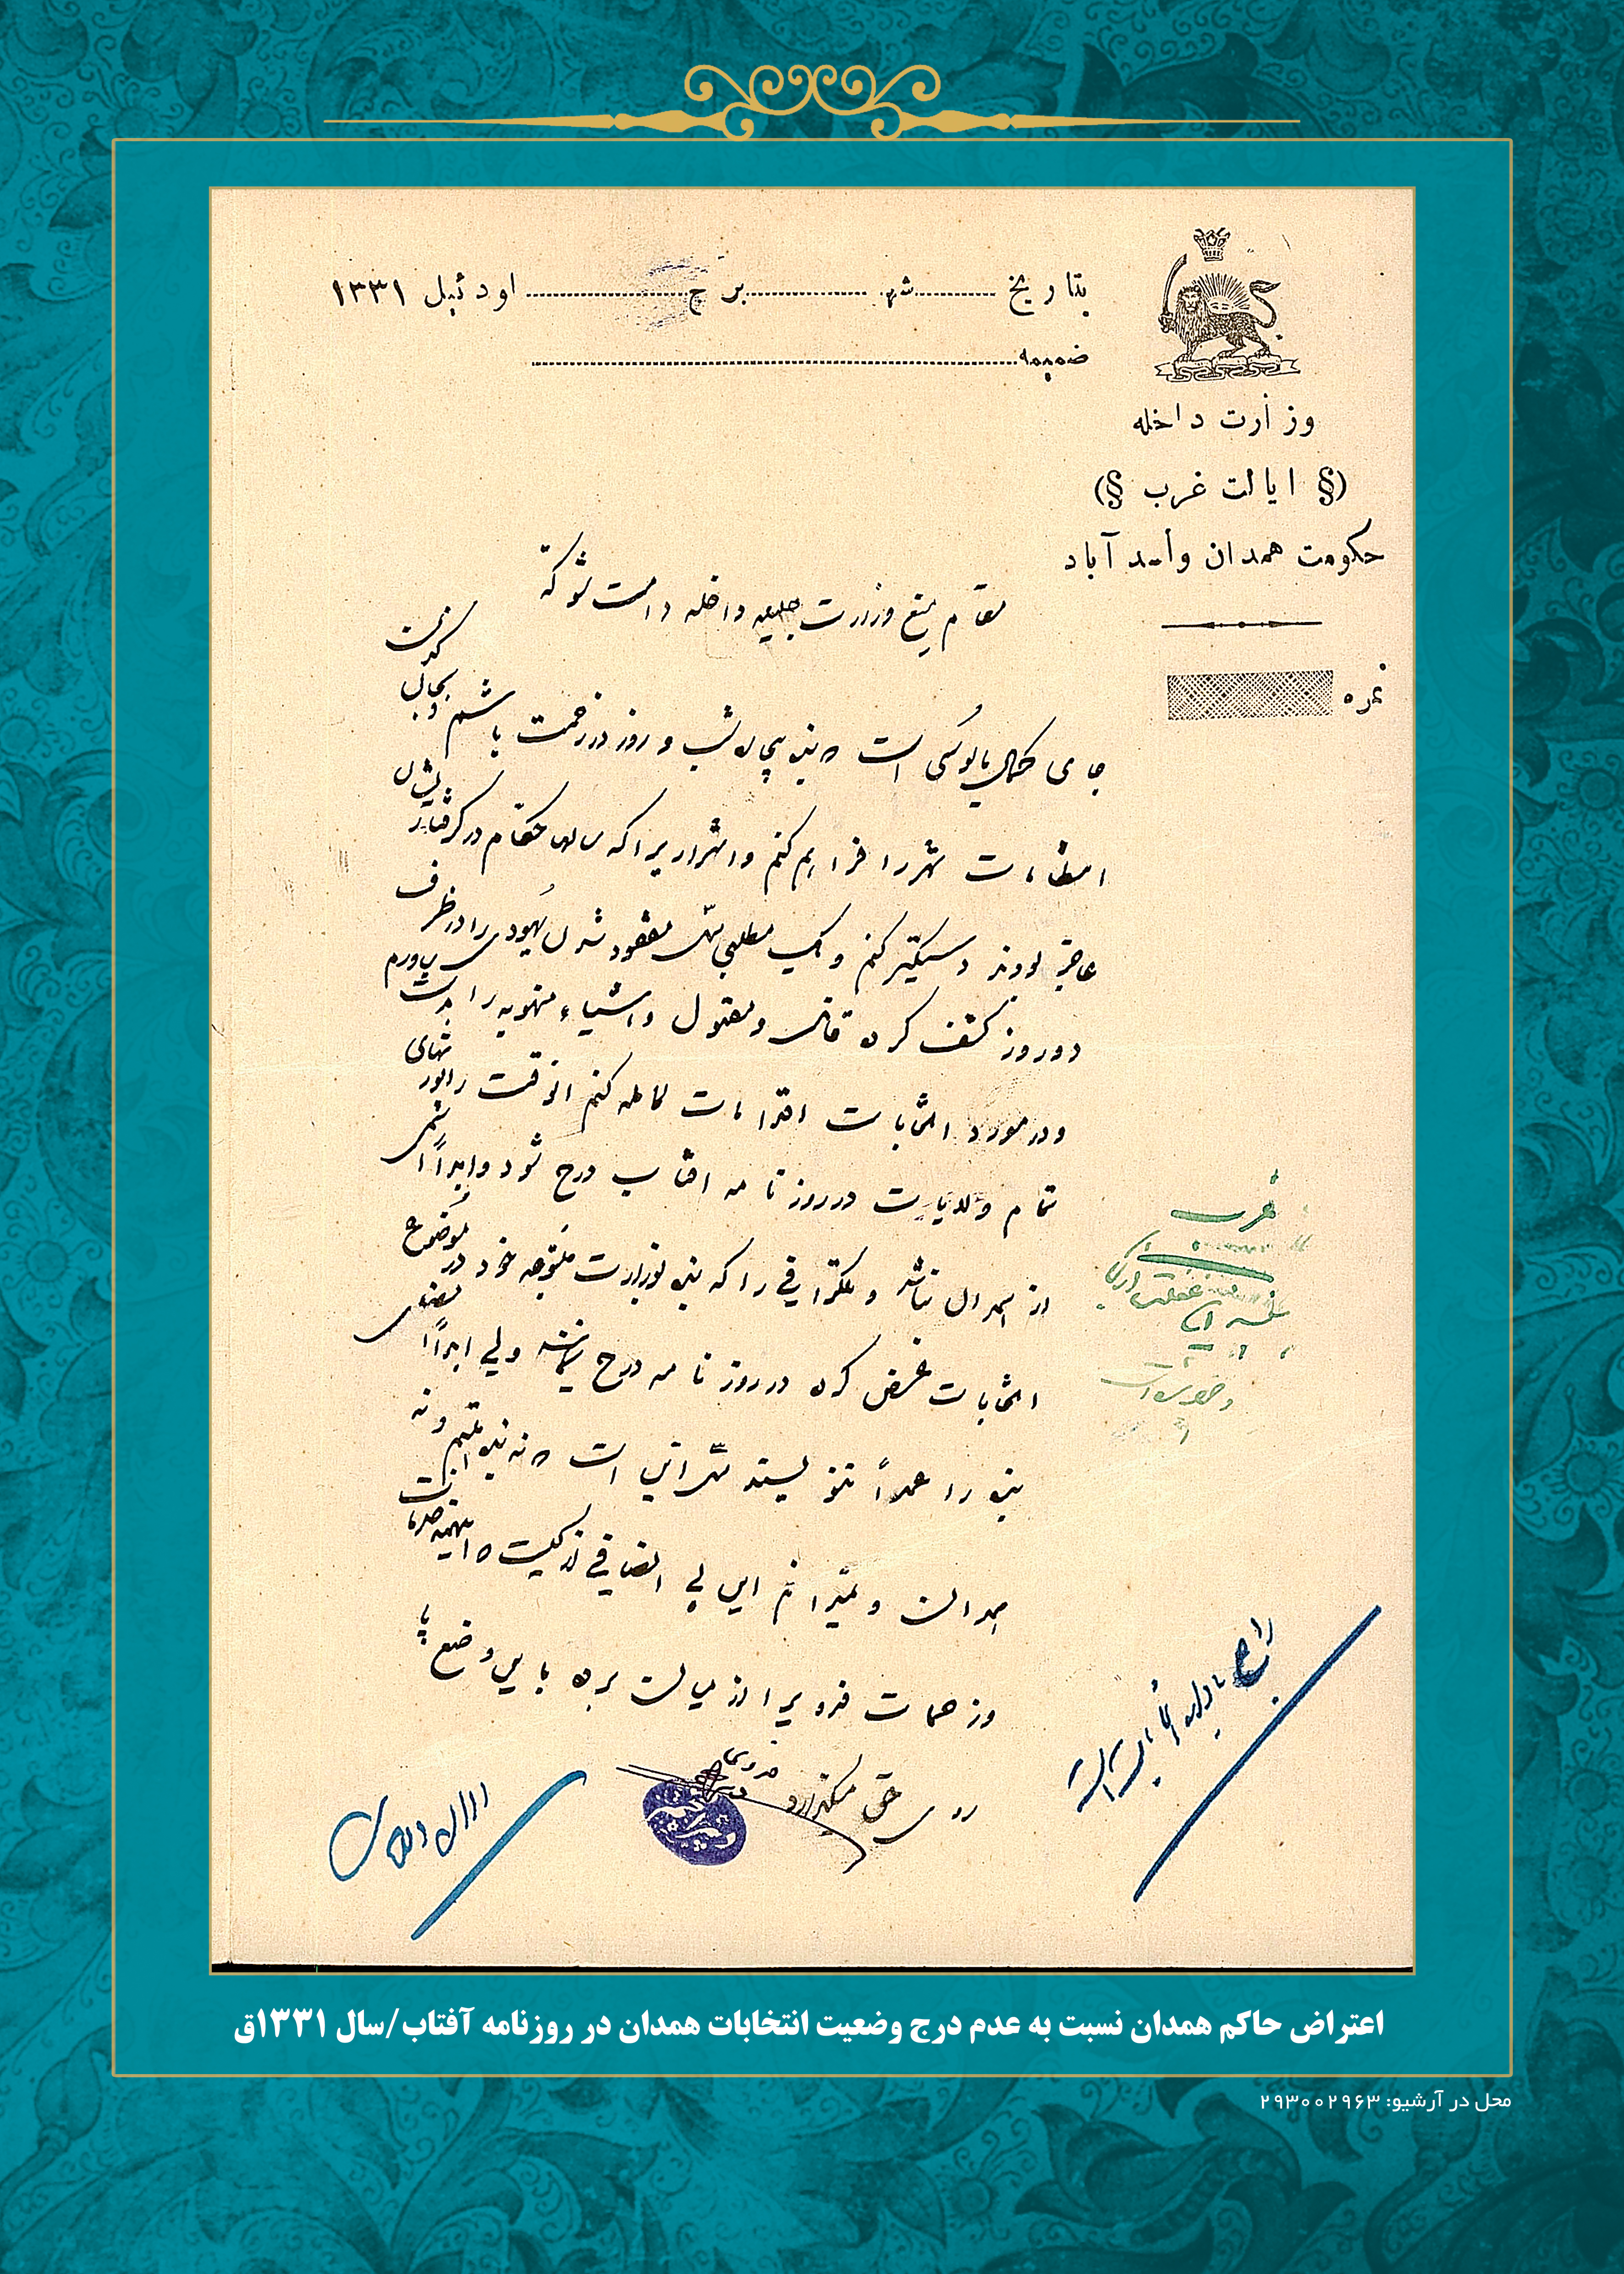 بتاریخ ........ شهر ........ برج ........ اودئیل ۱۳۳۱
ضمیمه ........
وزارت داخله
(§ ایالت غرب §)
حکومت همدان و اسد آباد
نمره
مقام منیع وزارت جلیله داخله دامت شوکته
جای کمال مایوسی است که بنده بیچاره شب و روز در زحمت باشم و بحال
شهر را فراهم کنم و اشراریرا که سالها حکام در گرفتاریشان
عاجز بودند دستگیر کنم و یک مطلبی مثل مفقود شدن یهودی را در ظرف
دو روز کشف کرده قاتل و مقتول و اشیاء منهوبه را بدست بیاورم
و در مورد انتخابات اقدامات کامله کنم انوقت راپورتهای
تمام ولایات در روزنامه افتاب درج شود و ابداً اسمی
از همدان نباشد و تلگرافی را که بنده بوزارت متبوعه خود در موضوع
انتخابات عرض کرده در روزنامه درج ولی ابداً امضای
بنده را عمداً ننویسند مثل اینست که نه بنده هستم و نه
همدان و نمیدانم این بی انصافی از کیست که اینهمه خدمات
و زحمات فدویرا از میانه برده باین وضع
روی حق میگذارد
فدوی
اعتراض حاکم همدان نسبت به عدم درج وضعیت انتخابات همدان در روزنامه آفتاب/سال ۱۳۳۱ق
محل در آرشیو: ۲۹۳۰۰۲۹۶۳